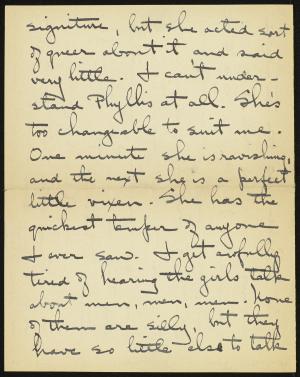 signiture, but she acted sort
of queer about it and said
very little. I can't under-
stand Phyllis at all. She's
too changeable to suit me.
One minute she is ravishing,
and the next she is a perfect
little vixen. She has the
quickest temper of anyone
I ever saw. I get awfully
tired of hearing the girls talk
about men, men, men. None
of them are silly, but they
have so little else to talk